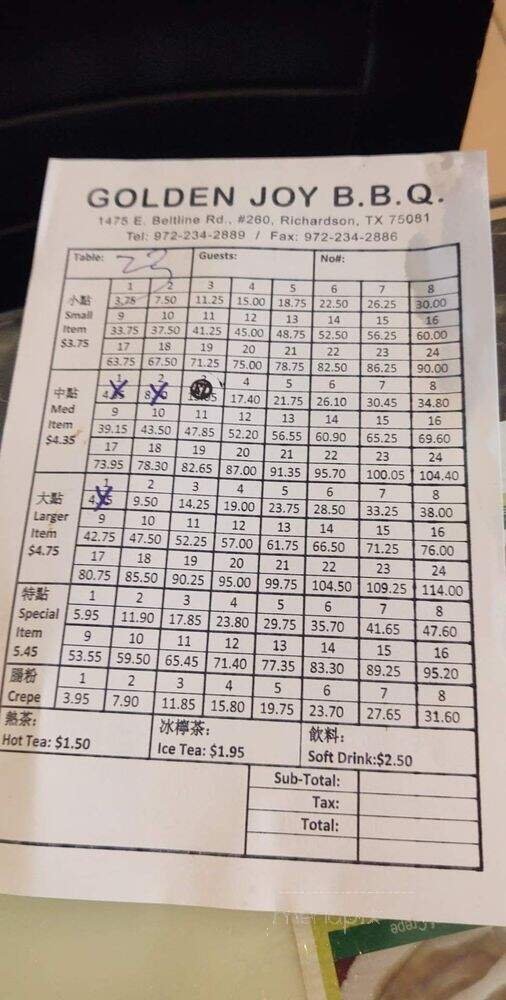 GOLDEN JOY B.B.Q.
1475 E. Beltline Rd., #260, Richardson, TX 75081
Tel: 972-234-2889 / Fax: 972-234-2886
Table: 23 Guests: No#:
小點 Small Item $3.75
1 2 3 4 5 6 7 8
3.75 7.50 11.25 15.00 18.75 22.50 26.25 30.00
9 10 11 12 13 14 15 16
33.75 37.50 41.25 45.00 48.75 52.50 56.25 60.00
17 18 19 20 21 22 23 24
63.75 67.50 71.25 75.00 78.75 82.50 86.25 90.00
中點 Med Item $4.35
1 2 4 5 6 7 8
17.40 21.75 26.10 30.45 34.80
9 10 11 12 13 14 15 16
39.15 43.50 47.85 52.20 56.55 60.90 65.25 69.60
17 18 19 20 21 22 23 24
73.95 78.30 82.65 87.00 91.35 95.70 100.05 104.40
大點 Larger Item $4.75
1 2 3 4 5 6 7 8
9.50 14.25 19.00 23.75 28.50 33.25 38.00
9 10 11 12 13 14 15 16
42.75 47.50 52.25 57.00 61.75 66.50 71.25 76.00
17 18 19 20 21 22 23 24
80.75 85.50 90.25 95.00 99.75 104.50 109.25 114.00
特點 Special Item 5.45
1 2 3 4 5 6 7 8
5.95 11.90 17.85 23.80 29.75 35.70 41.65 47.60
9 10 11 12 13 14 15 16
53.55 59.50 65.45 71.40 77.35 83.30 89.25 95.20
腸粉 Crepe
1 2 3 4 5 6 7 8
3.95 7.90 11.85 15.80 19.75 23.70 27.65 31.60
熱茶: 冰檸茶: 飲料:
Hot Tea: $1.50 Ice Tea: $1.95 Soft Drink:$2.50
Sub-Total:
Tax:
Total:
Crepe